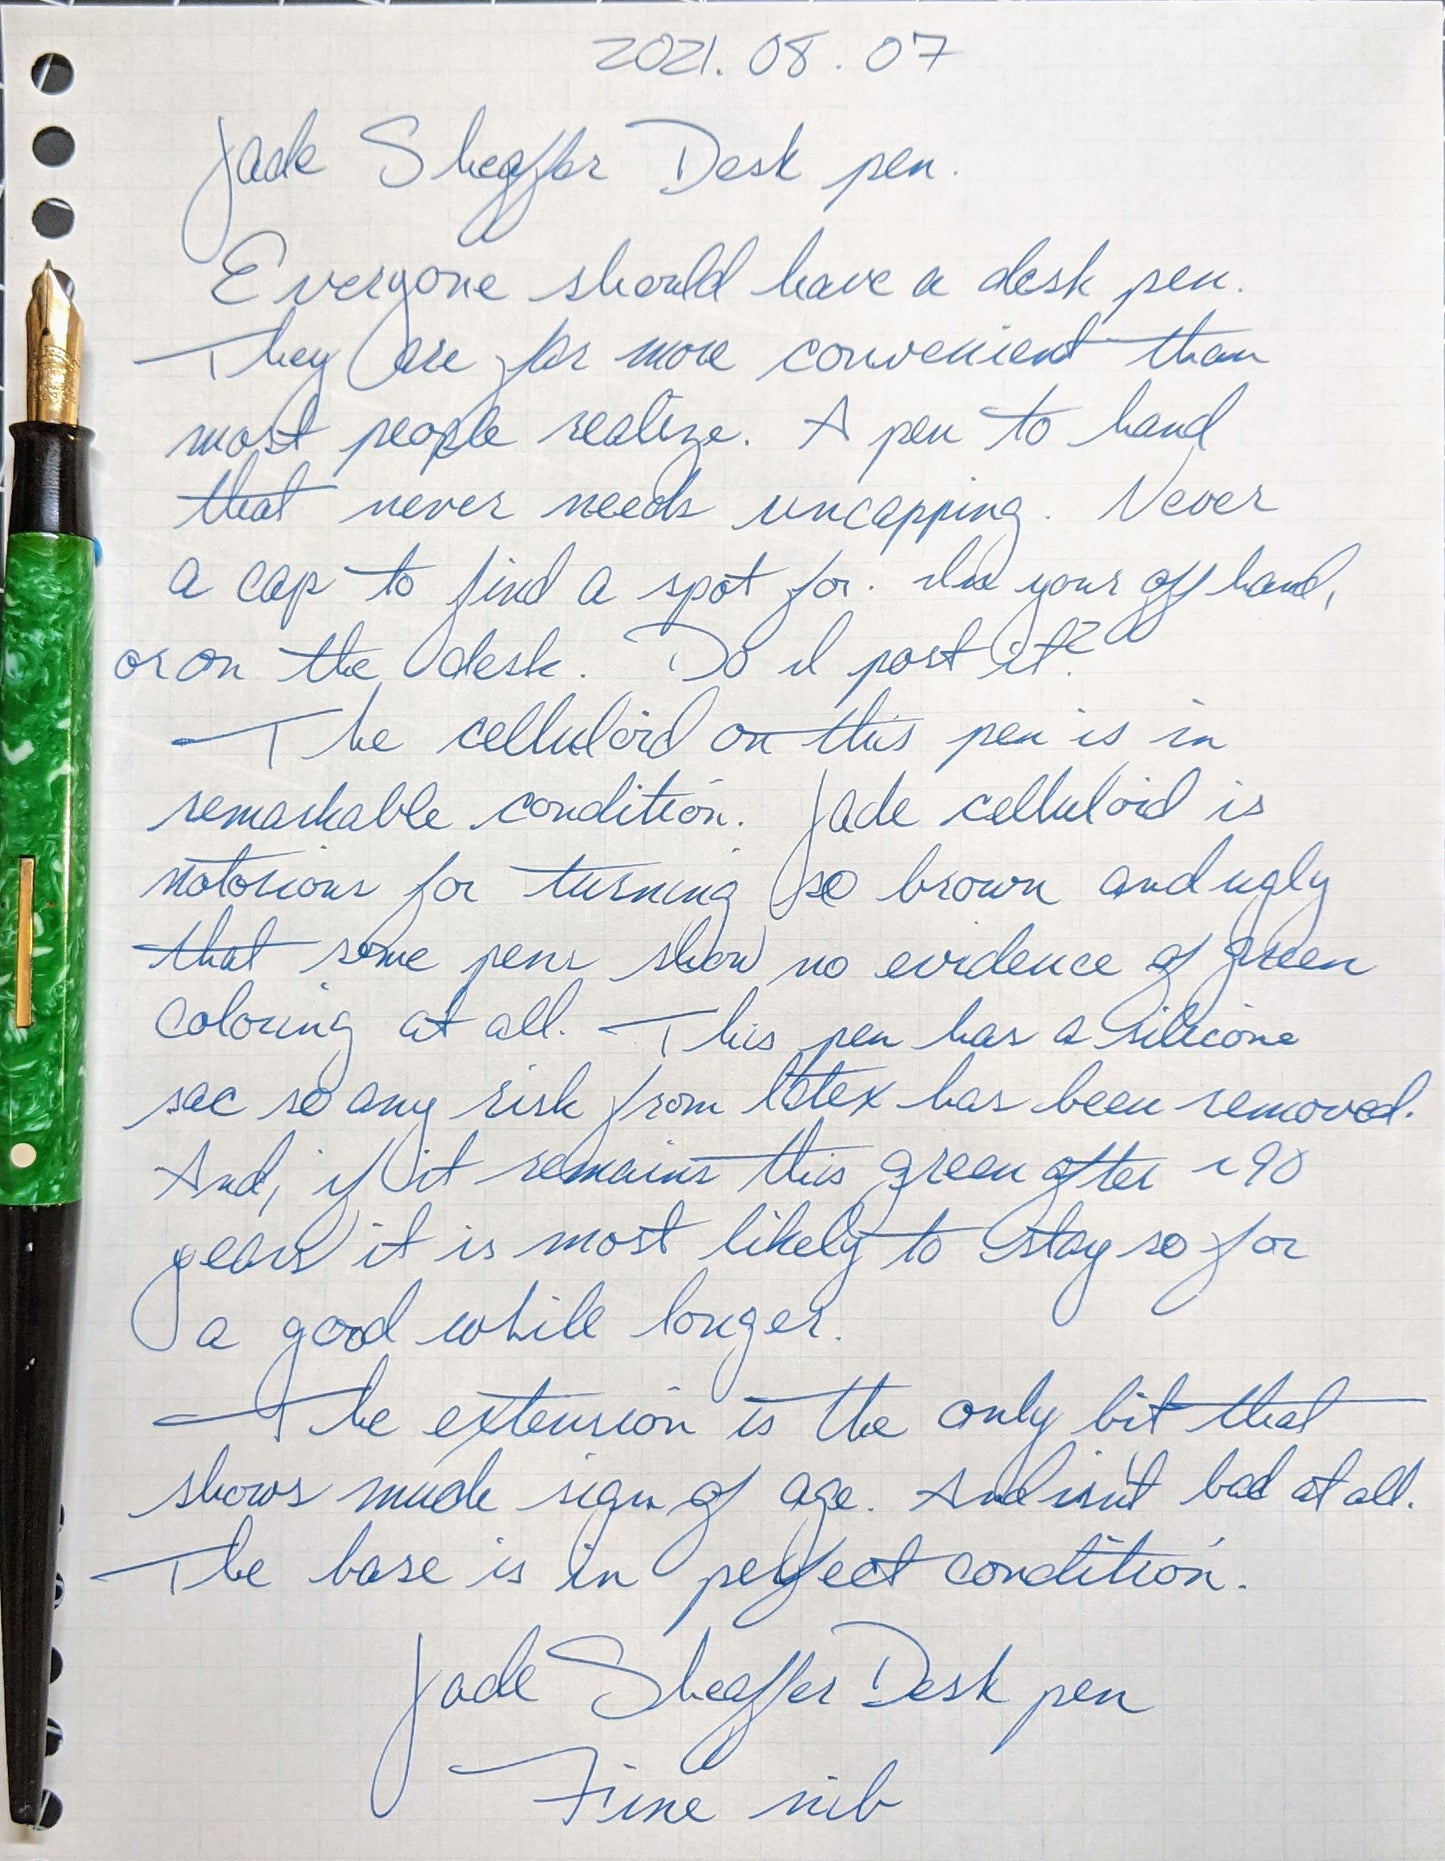 2021.08.07
Jade Sheaffer Desk pen.
Everyone should have a desk pen.
They are far more convenient than
most people realize. A pen to hand
that never needs uncapping. Never
a cap to find a spot for. In your off hand,
or on the desk. Do I post it?
The celluloid on this pen is in
remarkable condition. Jade celluloid is
notorious for turning so brown and ugly
that some pens show no evidence of green
coloring at all. This pen has a silicone
sac so any risk from latex has been removed.
And, if it remains this green after ~90
years it is most likely to stay so for
a good while longer.
The extension is the only bit that
shows much sign of age. And isn't bad at all.
The base is in perfect condition.
Jade Sheaffer Desk pen
Fine nib